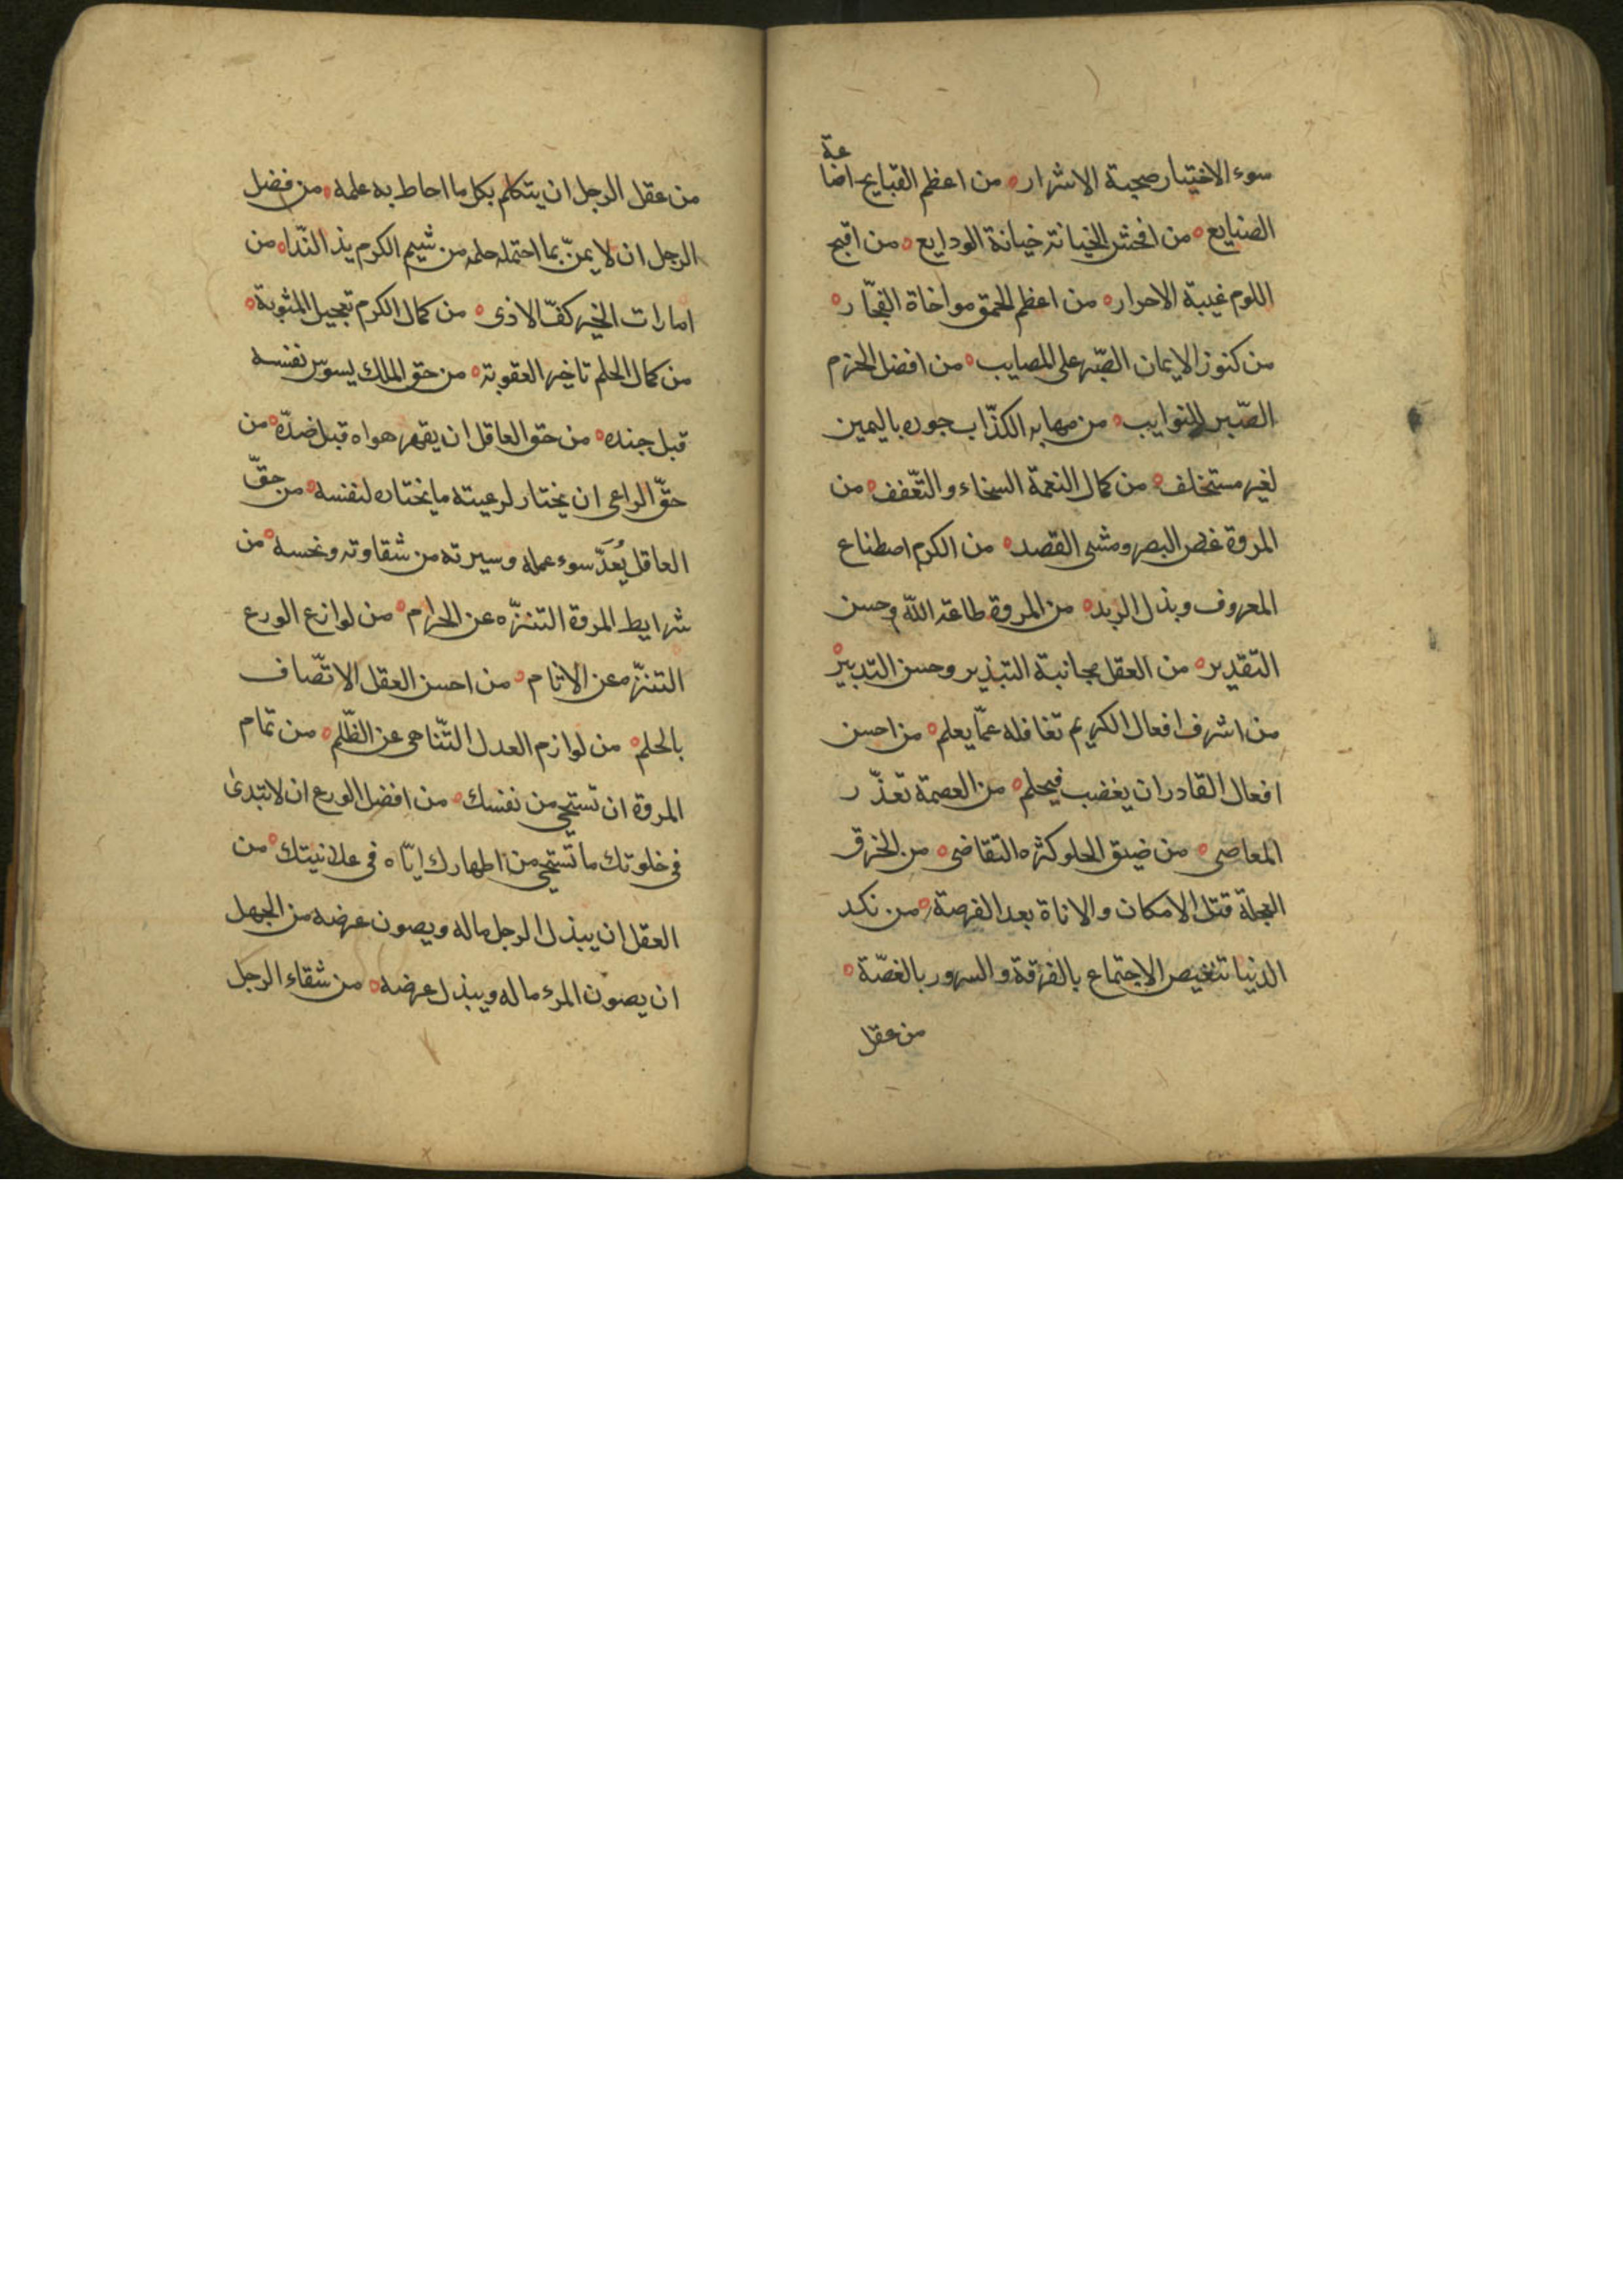 سوء الاختيار صحبة الاشرار ه من اعظم القبايح اضاعة
الصنايع ه من افحش الخيانة خيانة الودايع ه من اقبح
اللوم غيبة الاحرار ه من اعظم الحمق مواخاة الفجّار ه
من كنوز الايمان الصّبر على المصايب ه من افضل الحزم
الصّبر للنوايب ه من مهابه الكذّاب جوده باليمين
لغير مستخلف ه من كمال النعمة السخاء والتّعفف ه من
المروة غض البصر ومشى القصد ه من الكرم اصطناع
المعروف وبذل الربد ه من المروة طاعة الله وحسن
التقدير ه من العقل مجانبة التبذير وحسن التدبير ه
من اشرف افعال الكريم تغافله عمّا يعلم ه من احسن
افعال القادر ان يغضب فيحلم ه من العصمة تعذّر
المعاصى ه من ضيق الحلو كثره التقاضى ه من الخرق
العجلة قبل الامكان والاناة بعد الفرصة ه من نكد
الدنيا تنغيص الاجتماع بالفرقة والسرور بالغصّة ه
من عقل
من عقل الرجل ان يتكلم بكل ما احاط به علمه ه من فضل
الرجل ان لا يمنّ بما احتمله حلمه من شيم الكرم بذ النّدا ه من
امارات الخير كفّ الاذى ه من كمال الكرم تعجيل المثوبة ه
من كمال الحلم تاخير العقوبة ه من حق الملك يسوس نفسه
قبل جنده ه من حق العاقل ان يقهر هواه قبل ضدّه ه من
حقّ الراعى ان يختار لرعيته ما يختاره لنفسه ه من حقّ
العاقل يُعَدّ سوء عمله وسيرته من شقاوته ونحسه ه من
شرايط المروة التنزّه عن الحرام ه من لوازع الورع
التنزّه عن الاثام ه من احسن العقل الاتّصاف
بالحلم ه من لوازم العدل التّناهى عن الظّلم ه من تمام
المروة ان تستحى من نفسك ه من افضل الورع ان لا تبدئ
فى خلوتك ما تستحى من اظهارك ايّاه فى علانيتك ه من
العقل ان يبذل الرجل ماله ويصون عرضه من الجهل
ان يصون المرء ماله ويبذل عرضه ه من شقاء الرجل